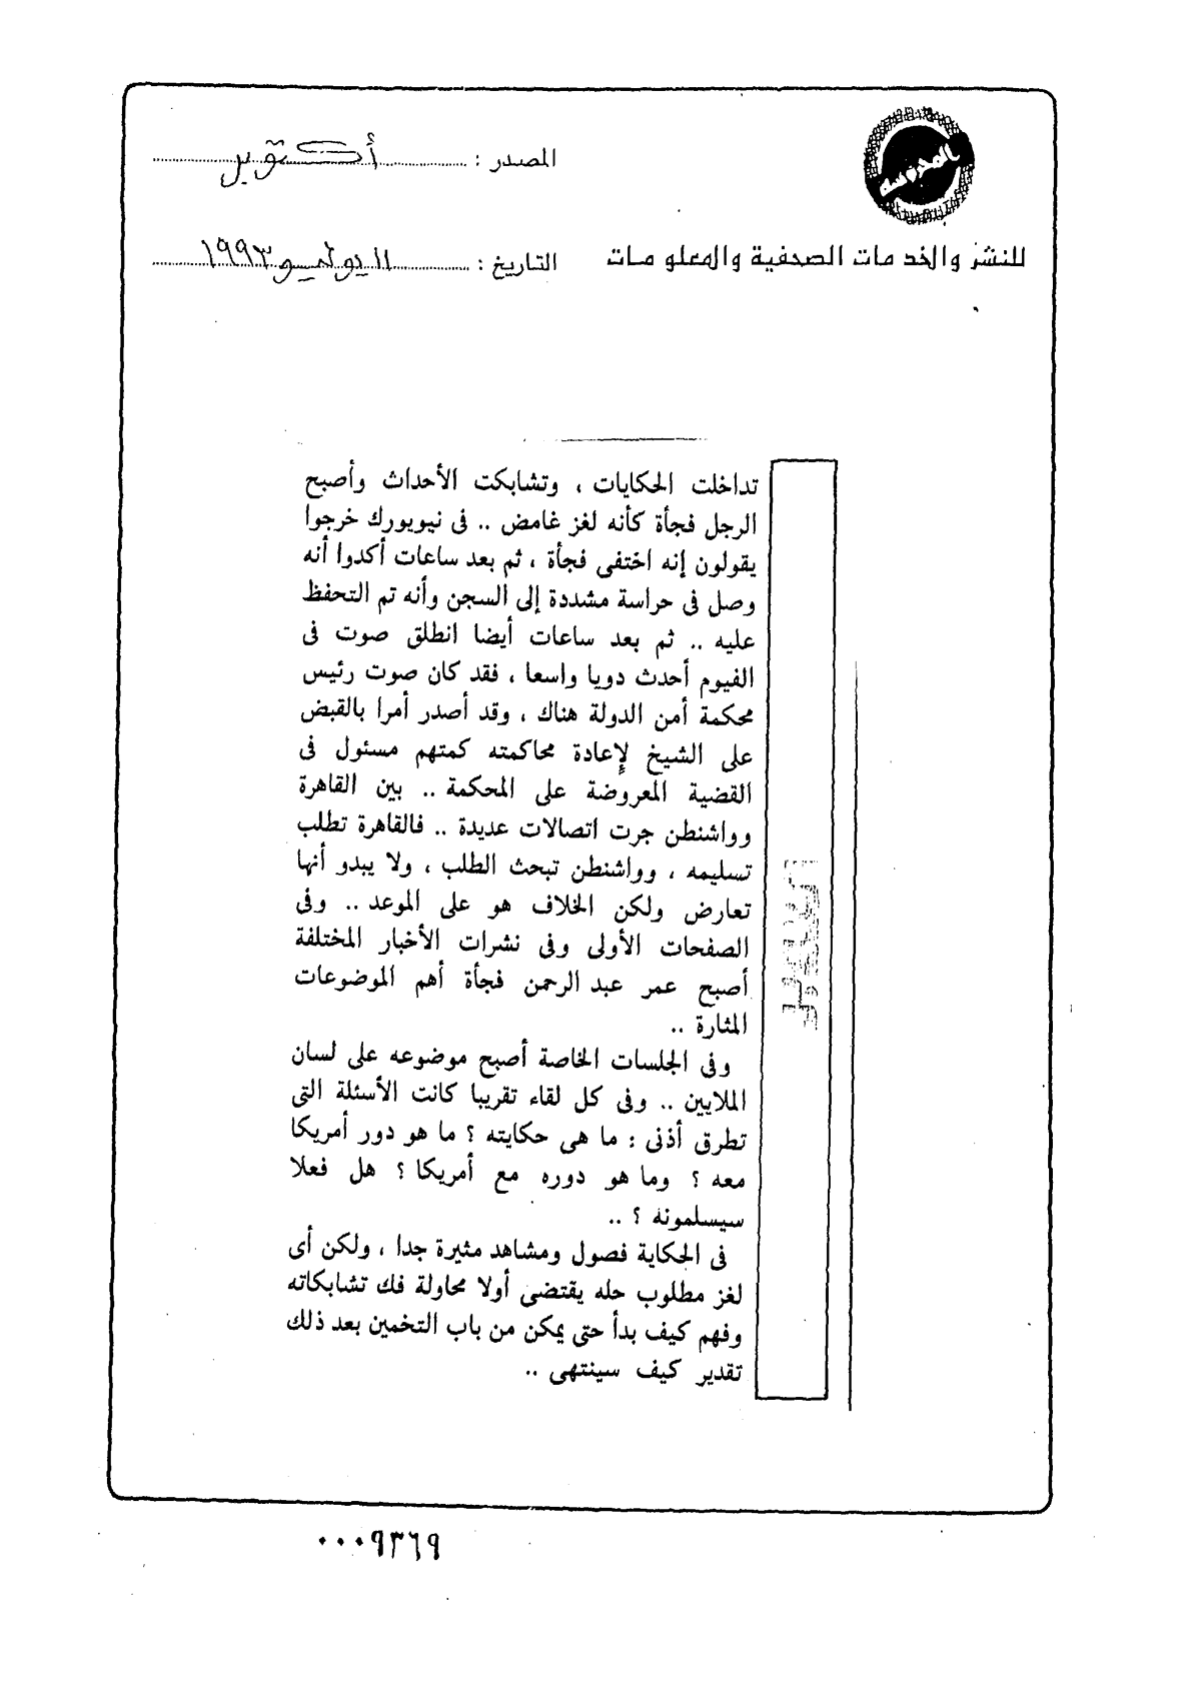 المحروسة
للنشر والخدمات الصحفية والمعلومات
المصدر : أكتوبر
التاريخ : ١١ يوليو ١٩٩٣
تداخلت الحكايات ، وتشابكت الأحداث وأصبح
الرجل فجأة كأنه لغز غامض .. فى نيويورك خرجوا
يقولون إنه اختفى فجأة ، ثم بعد ساعات أكدوا أنه
وصل فى حراسة مشددة إلى السجن وأنه تم التحفظ
عليه .. ثم بعد ساعات أيضا انطلق صوت فى
الفيوم أحدث دويا واسعا ، فقد كان صوت رئيس
محكمة أمن الدولة هناك ، وقد أصدر أمرا بالقبض
على الشيخ لإعادة محاكمته كمتهم مسئول فى
القضية المعروضة على المحكمة .. بين القاهرة
وواشنطن جرت اتصالات عديدة .. فالقاهرة تطلب
تسليمه ، وواشنطن تبحث الطلب ، ولا يبدو أنها
تعارض ولكن الخلاف هو على الموعد .. وفى
الصفحات الأولى وفى نشرات الأخبار المختلفة
أصبح عمر عبد الرحمن فجأة أهم الموضوعات
المثارة ..
وفى الجلسات الخاصة أصبح موضوعه على لسان
الملايين .. وفى كل لقاء تقريبا كانت الأسئلة التى
تطرق أذنى : ما هى حكايته ؟ ما هو دور أمريكا
معه ؟ وما هو دوره مع أمريكا ؟ هل فعلا
سيسلمونه ؟ ..
فى الحكاية فصول ومشاهد مثيرة جدا ، ولكن أى
لغز مطلوب حله يقتضى أولا محاولة فك تشابكاته
وفهم كيف بدأ حتى يمكن من باب التخمين بعد ذلك
تقدير كيف سينتهى ..
٠٠٠٩٣٦٩